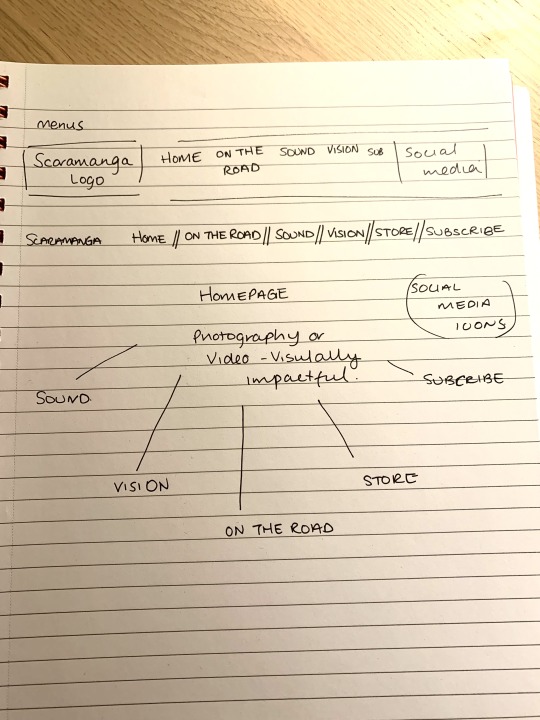 menus
Scaramanga HOME ON THE SOUND VISION SUB Social
Logo ROAD media
SCARAMANGA Home // ON THE ROAD // SOUND // VISION // STORE // SUBSCRIBE
HOMEPAGE SOCIAL
MEDIA
ICONS
Photography or
Video - Visulally
impactful.
SOUND SUBCRIBE
VISION STORE
ON THE ROAD